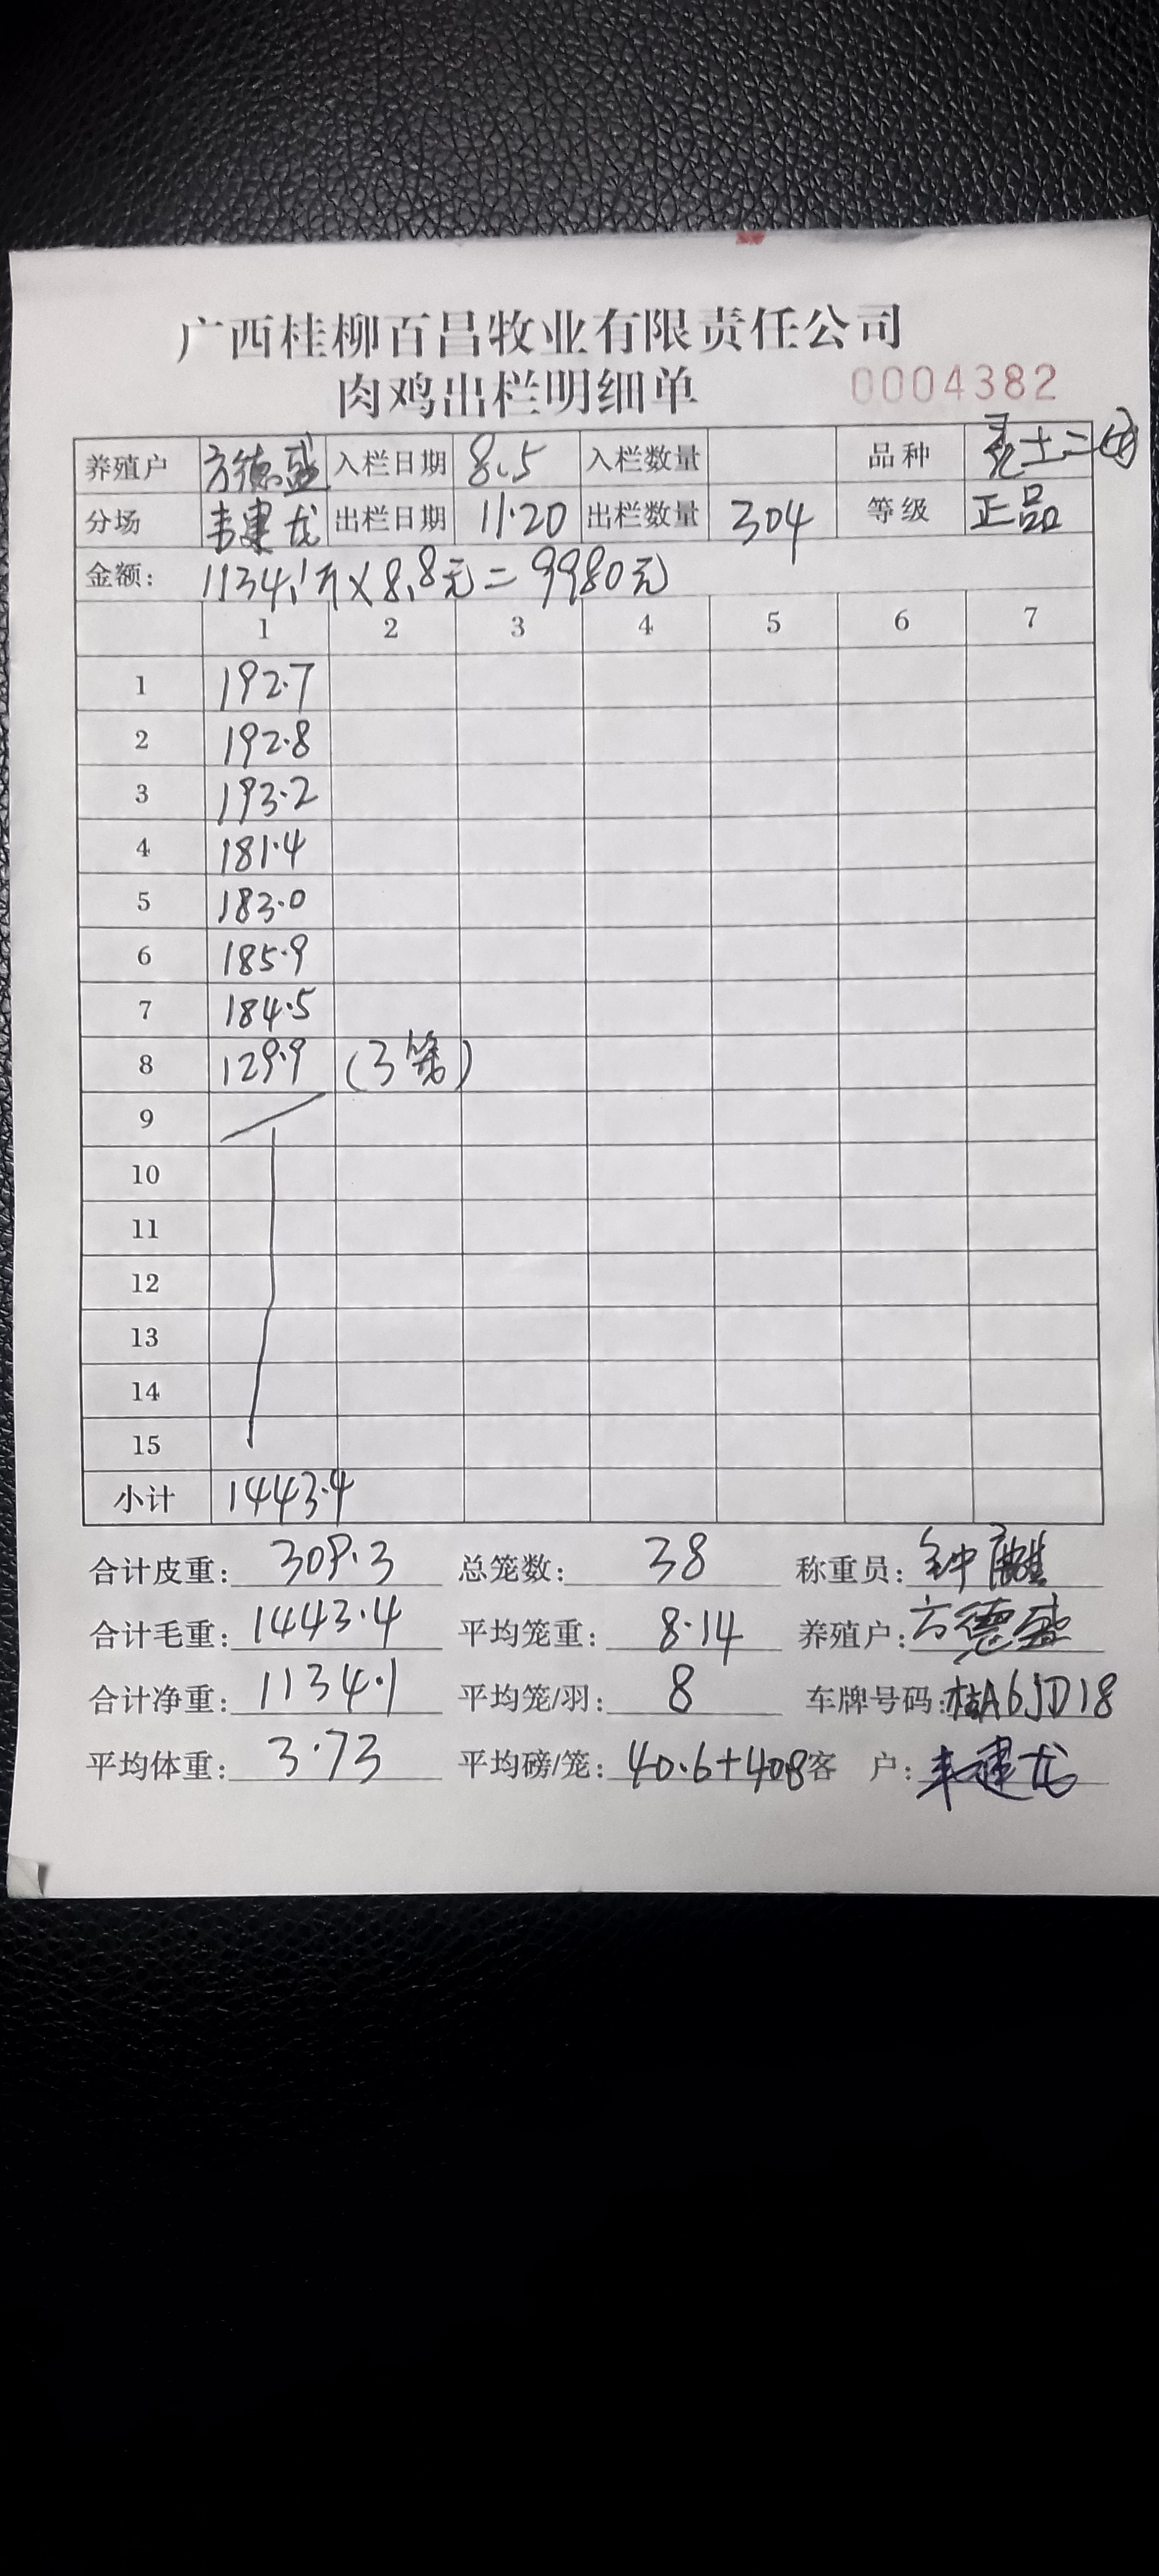 广西桂柳百昌牧业有限责任公司
肉鸡出栏明细单 0004382
养殖户 方德盛 入栏日期 8.5 入栏数量 品种 土二
分场 韦建龙 出栏日期 11.20 出栏数量 304 等级 正品
金额: 1134.1斤×8.8元=9980元
1 2 3 4 5 6 7
1 192.7
2 192.8
3 193.2
4 181.4
5 183.0
6 185.9
7 184.5
8 129.9 (3笼)
9
10
11
12
13
14
15
小计 1443.4
合计皮重: 309.3 总笼数: 38 称重员: 钟
合计毛重: 1443.4 平均笼重: 8.14 养殖户: 方德盛
合计净重: 1134.1 平均笼/羽: 8 车牌号码: 桂A6JD18
平均体重: 3.73 平均磅/笼: 40.6+408 客 户: 韦建龙